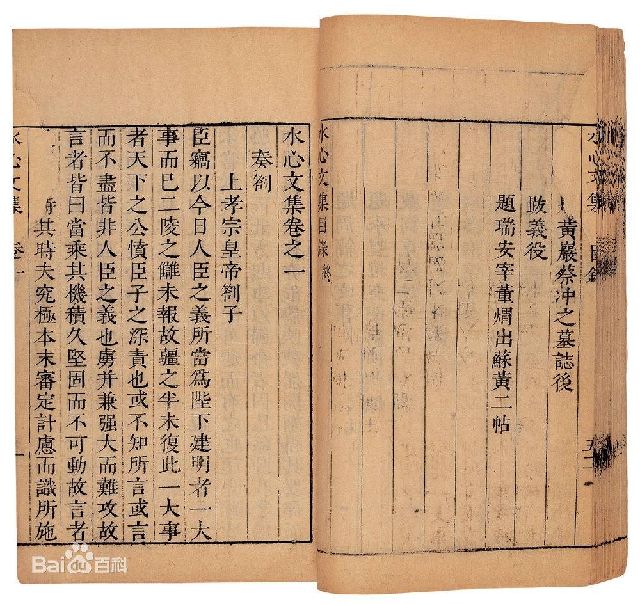 水心文集 目錄
黃巖蔡沖之墓誌後
跋義役
題瑞安宰董煟出蘇黃二帖
水心文集目錄終
水心文集卷之一
奏劄
上孝宗皇帝劄子
臣竊以今日人臣之義所當爲陛下建明者一大
事而已二陵之讎未報故疆之半未復此一大事
者天下之公憤臣子之深責也或不知所言或言
而不盡皆非人臣之義也虜并兼强大而難攻故
言者皆曰當乘其機積久堅固而不可動故言者
其時夫究極本末審定計慮而識所施
水心文集 卷一
Bai百科